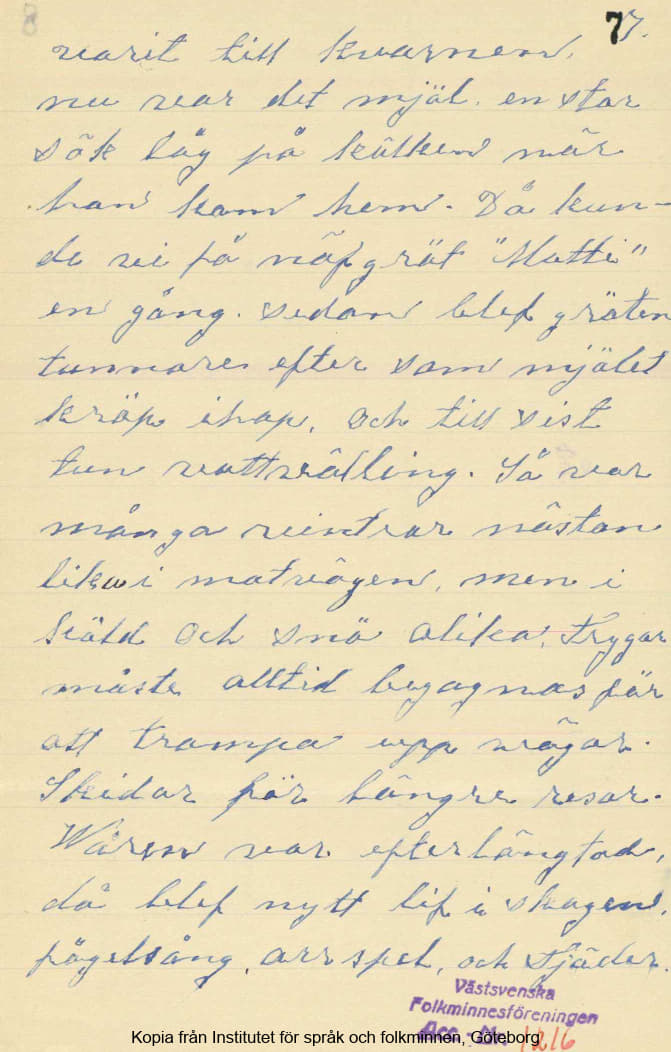 77.
varit till kvarnen,
nu var det mjöl. en stor
sök låg på kälken när
han kom hem. Då kun-
de vi få näfgröt "Motti"
en gång. sedan blef gröten
tunnare efter som mjölet
kröp ihop, och till sist
tun vattvälling. Så var
många vintrar nästan
lika i matvägen, men i
köld och snö olika, Trygor
måste alltid begagnas för
att trampa upp vägar.
Skidor för längre resor.
Wåren var efterlängtad,
då blef nytt lif i skogen,
fågelsång, orrspel, och tjäder.
Västsvenska
Folkminnesföreningen
Acc. Nr. 1216
Kopia från Institutet för språk och folkminnen, Göteborg